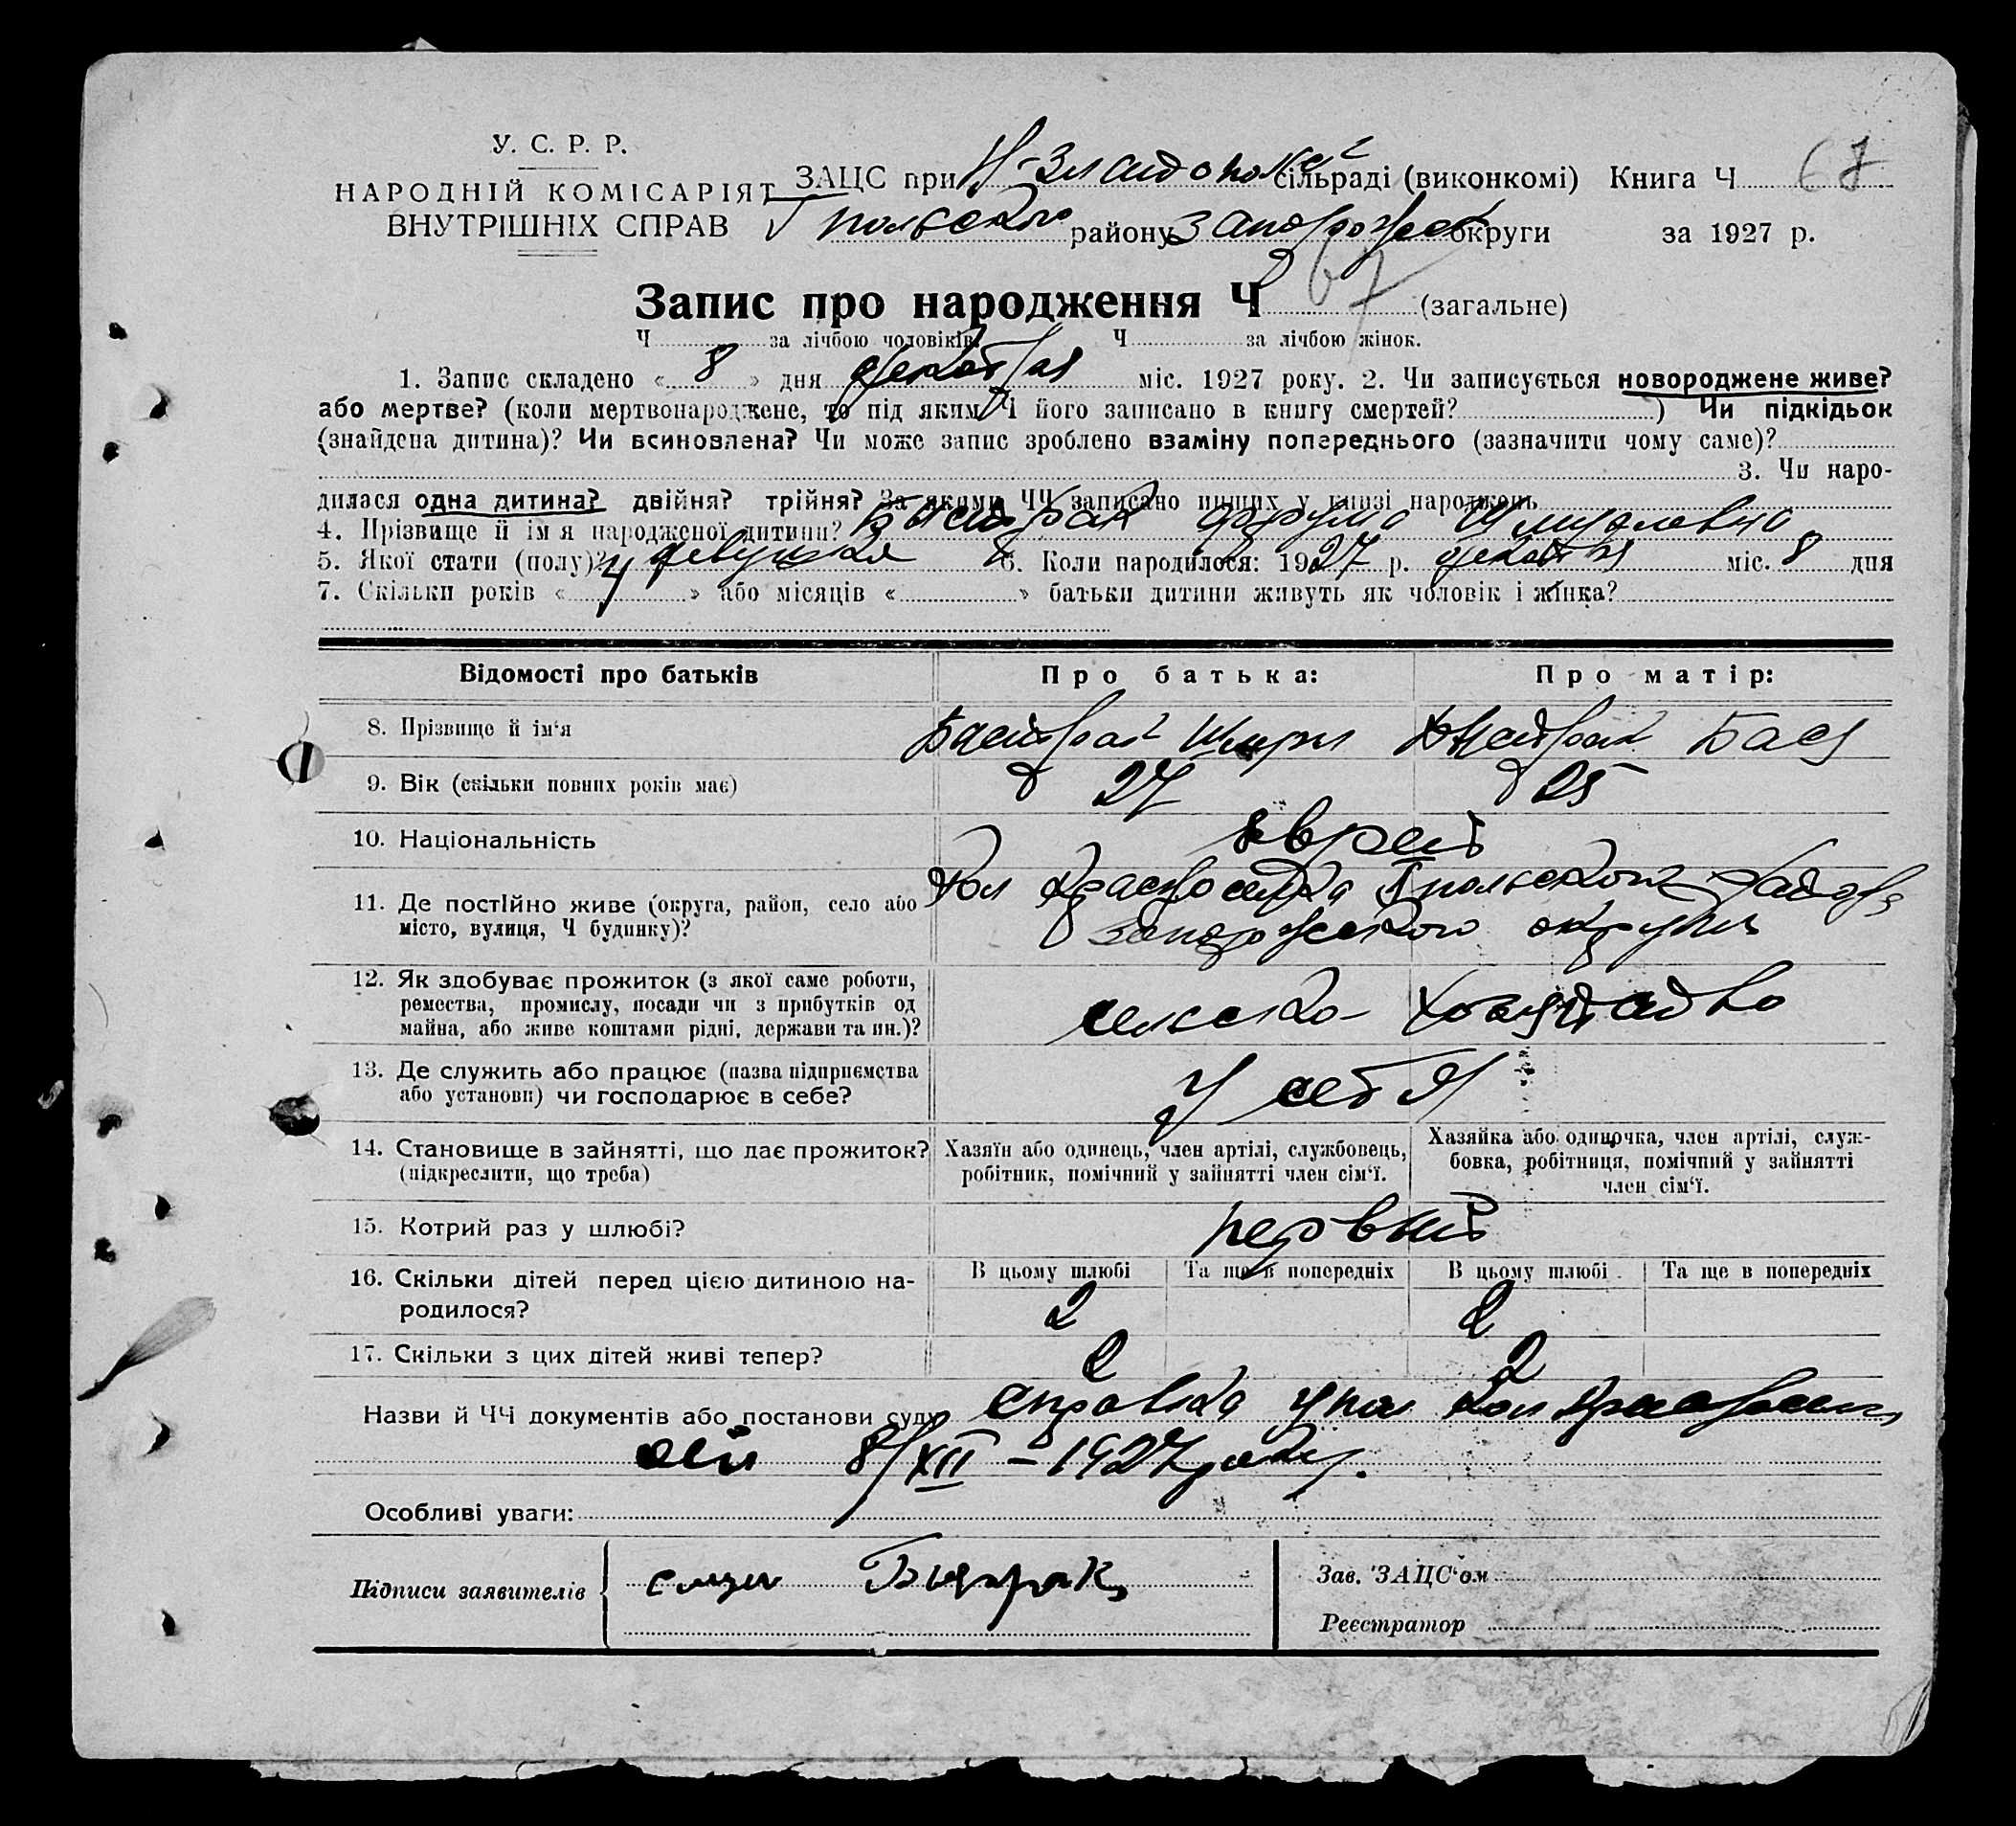 У. С. Р. Р.
НАРОДНІЙ КОМІСАРІЯТ
ВНУТРІШНІХ СПРАВ
ЗАЦС при Н-Златополь сільраді (виконкомі) Книга Ч 67
польского району Запорожск округи за 1927 р.
Запис про народження Ч 67 (загальне)
Ч за лічбою чоловіків. Ч за лічбою жінок.
1. Запис складено « 8 » дня декабря міс. 1927 року. 2. Чи записується новороджене живе?
або мертве? (коли мертвонароджене, то під яким Ч його записано в книгу смертей? ) Чи підкідьок
(знайдена дитина)? Чи всиновлена? Чи може запис зроблено взаміну попереднього (зазначити чому саме)?
3. Чи наро-
дилася одна дитина? двійня? трійня? За якими ЧЧ записано инших у книзі народжень
4. Прізвище й ім я народженої дитини? Фрума Шмулевна
5. Якої стати (полу)? девушка 6. Коли народилося: 1927 р. декабря міс. 8 дня
7. Скільки років « 4 » або місяців « » батьки дитини живуть як чоловік і жінка?
Відомості про батьків Про батька: Про матір:
8. Прізвище й ім‘я Быстрак Быстрак Бася
9. Вік (скільки повних років має) 27 25
10. Національність еврей
11. Де постійно живе (округа, район, село або
місто, вулиця, Ч будинку)? Кол Красноселка польского района
запорожского округи
12. Як здобуває прожиток (з якої саме роботи,
ремества, промислу, посади чи з прибутків од
майна, або живе коштами рідні, держави та ин.)? сельско-хозяйство
13. Де служить або працює (назва підприємства
або установи) чи господарює в себе? У себя
14. Становище в зайнятті, що дає прожиток?
(підкреслити, що треба)
Хазяїн або одинець, член артілі, службовець,
робітник, помічний у зайнятті член сім‘ї.
Хазяйка або одиночка, член артілі, служ-
бовка, робітниця, помічний у зайнятті
член сім‘ї.
15. Котрий раз у шлюбі? первый
16. Скільки дітей перед цією дитиною на-
родилося?
В цьому шлюбі Та ще в попередніх В цьому шлюбі Та ще в попередніх
2 2
17. Скільки з цих дітей живі тепер? 2 2
Назви й ЧЧ документів або постанови суду справка упол кол
8/XII – 1927 году.
Особливі уваги:
Підписи заявителів
Зав. ЗАЦС‘ом
Реєстратор